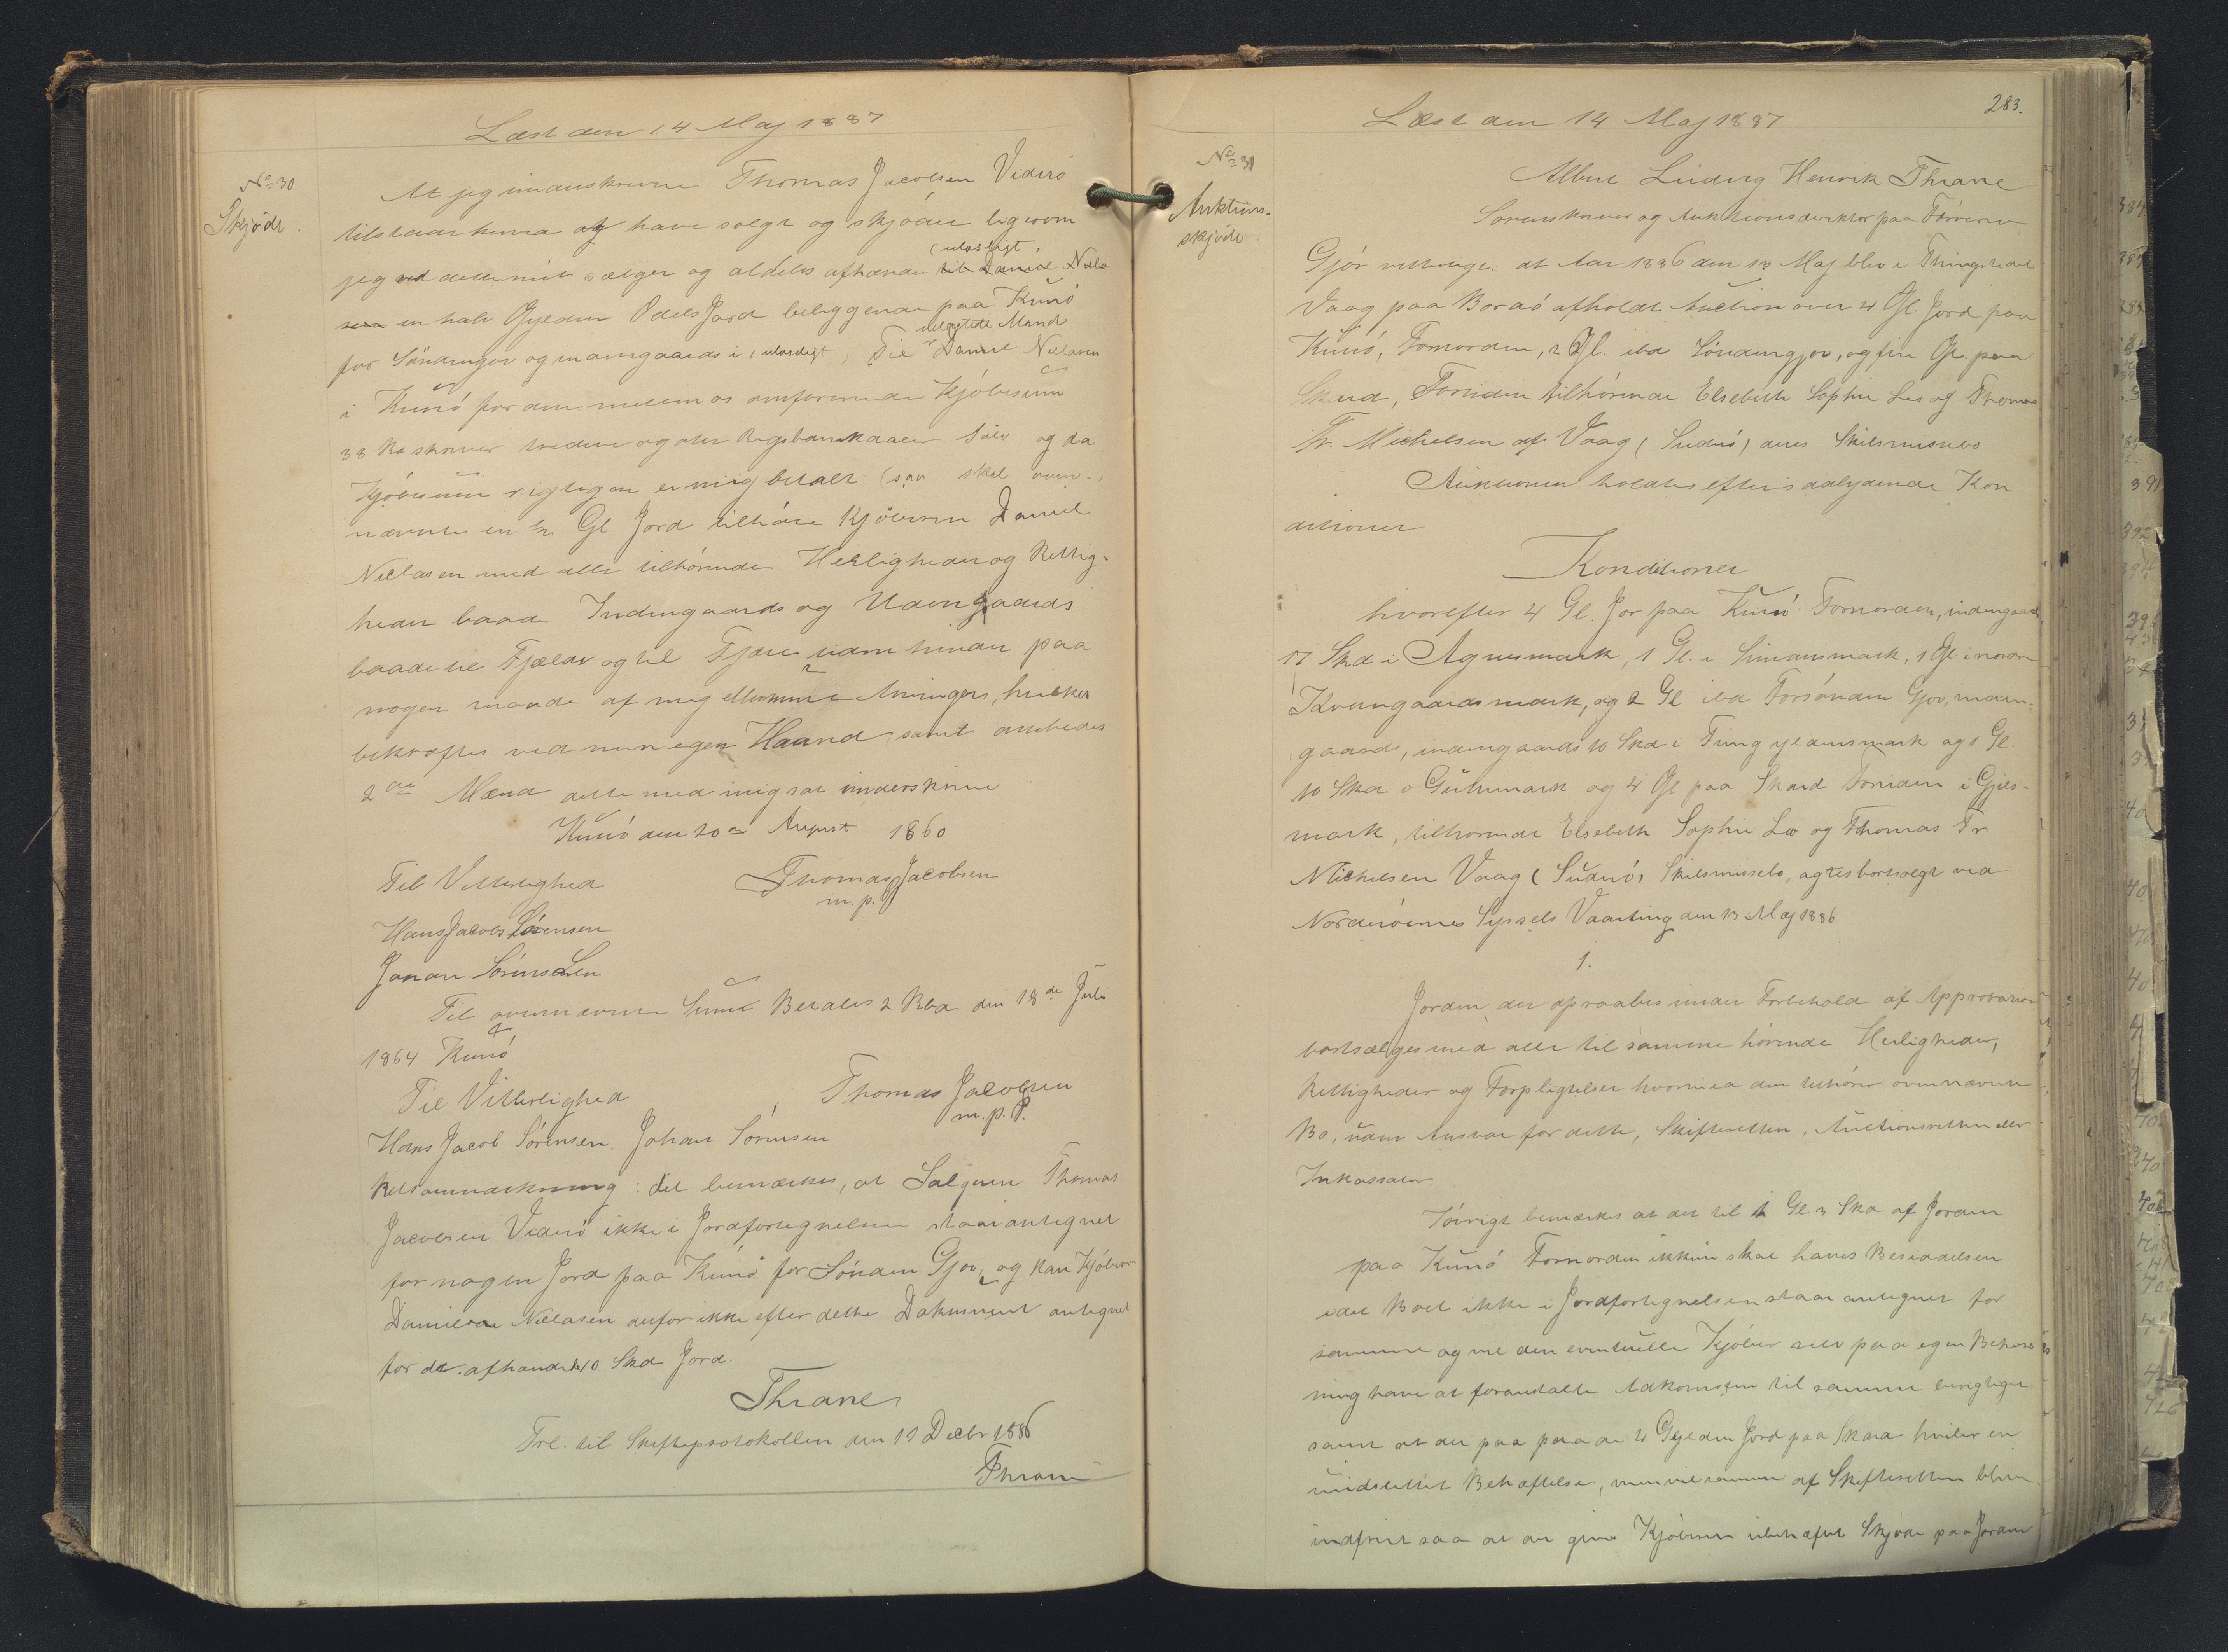 Læst den 14 Maj 1887
No 30
Skjöde.
At jeg underskrevne Thomas Jacobsen Viderö
tilstaar herved at have solgt og skjödet ligesom
jeg ved dette mit sælger og aldeles afhænder (ulæsligt) til Daniel Niela
sen en halv Gylden Odels Jord beliggende paa Kunö
for Söndengjov og indengaards i (ulæsligt), Til velagtede Mand Daniel Nielasen
i Kunö for den mellem os omforenede Kjöbesum
38 Rd skriver tredive og otte Rigsbankdaler Sölv og da
Kjöbesum rigtigen er mig betalt (saa skal oven-
nævnte en 1/2 Gl. Jord tilhöre Kjöberen Daniel
Nielasen med alle tilhörende Herligheder og Rettig-
heder baade Indengaards og Udengaards
baade til Fjelds og til Fjære uden hinder paa
nogen maade af mig eller mine Arvinger, hvilket
bekræftes ved min egen Haand samt ombedes
2de Mænd dette med mig at underskrive
Kunö den 20de August 1860
Til Vitterlighed
Thomas Jacobsen
m. p. P.
Hans Jacob Sörensen
Johan Sörensen
Til ovennævnte Sum Betales 2 Rbd den 18de Juli
1864 Kunö
Til Vitterlighed
Thomas Jacobsen
m. p. P.
Hans Jacob Sörensen. Johan Sörensen
Retsanmærkning: det bemærkes, at Sælgeren Thomas
Jacobsen Viderö ikke i Jordfortegnelsen staar antegnet
for nogen Jord paa Kunö for Sönden Gjov, og kan Kjöberen
Daniel Nielasen derfor ikke efter dette Dokument antegnes
for de afhændede 10 Skd Jord.
Thrane
Trl. til Skifteprotokollen den 11 Decbr 1886
Thrane
283.
Læst den 14 Maj 1887
No 31
Auktions-
skjöde
Albert Ludvig Henrik Thrane
Sorenskriver og Auktionsdirektör paa Færöerne
Gjör vitterligt: at Aar 1886 den 13 Maj blev i Thingstedet
Vaag paa Bordö afholdt Auction over 4 Gl Jord paa
Kunö, Fornorden, 2 Gl. ibd Söndengjov, og fire Gl. paa
Skard, Forsiden tilhörende Elsebeth Sophie Leo og Thomas
Fr. Michelsen af Vaag (Suderö) deres Skilsmissebo
Auktionen holdtes efter saalydende Kon
ditioner
Konditioner
hvorefter 4 Gl. Jor paa Kunö Fornorden, indengaards
17 Skd i Agnesmark, 1 Gl. i Simansmark, 1 Gl. i norden
Kvangaardsmark, og 2 Gl ibd Forsönden Gjov, inden-
gaards, indengaards 10 Skd i Fimgyldensmark og 1 Gl.
10 Skd i Gutumark og 4 Gl paa Skard Forsiden i Gjils-
mark, tilhörende Elsebeth Sophie Leo og Thomas Fr
Michelsen Vaag (Suderö) Skilsmissebo, agtes bortsolgt ved
Norderöernes Syssels Vaarting den 13 Maj 1886
1.
Jorden der opraabes under Forbehold af Approbation
bortsælges med alle til samme hörende Herligheder,
Rettigheder og Forpligtelser hvormed den tilhörer ovennævnte
Bo, uden Ansvar for dette, Skifteretten, Auctionsretten eller
Inkassator.
Iövrigt bemærkes at det til 1 Gl 3 Skd af Jorden
paa Kunö Fornorden ikkun skal haves Besiddelsen
idet Boet ikke i Jordfortegnelsen staar antegnet for
samme og vil den eventuelle Kjöber selv paa egen Bekost
ning have at foranstalte Adkomsten til samme berigtiget
samt at der paa de 4 Gylden Jord paa Skard hviler en
uudslettet Behæftelse, men vil samme af Skifteretten blive
indfriet saa at der gives Kjöberen ubehæftet Skjöde paa Jorden